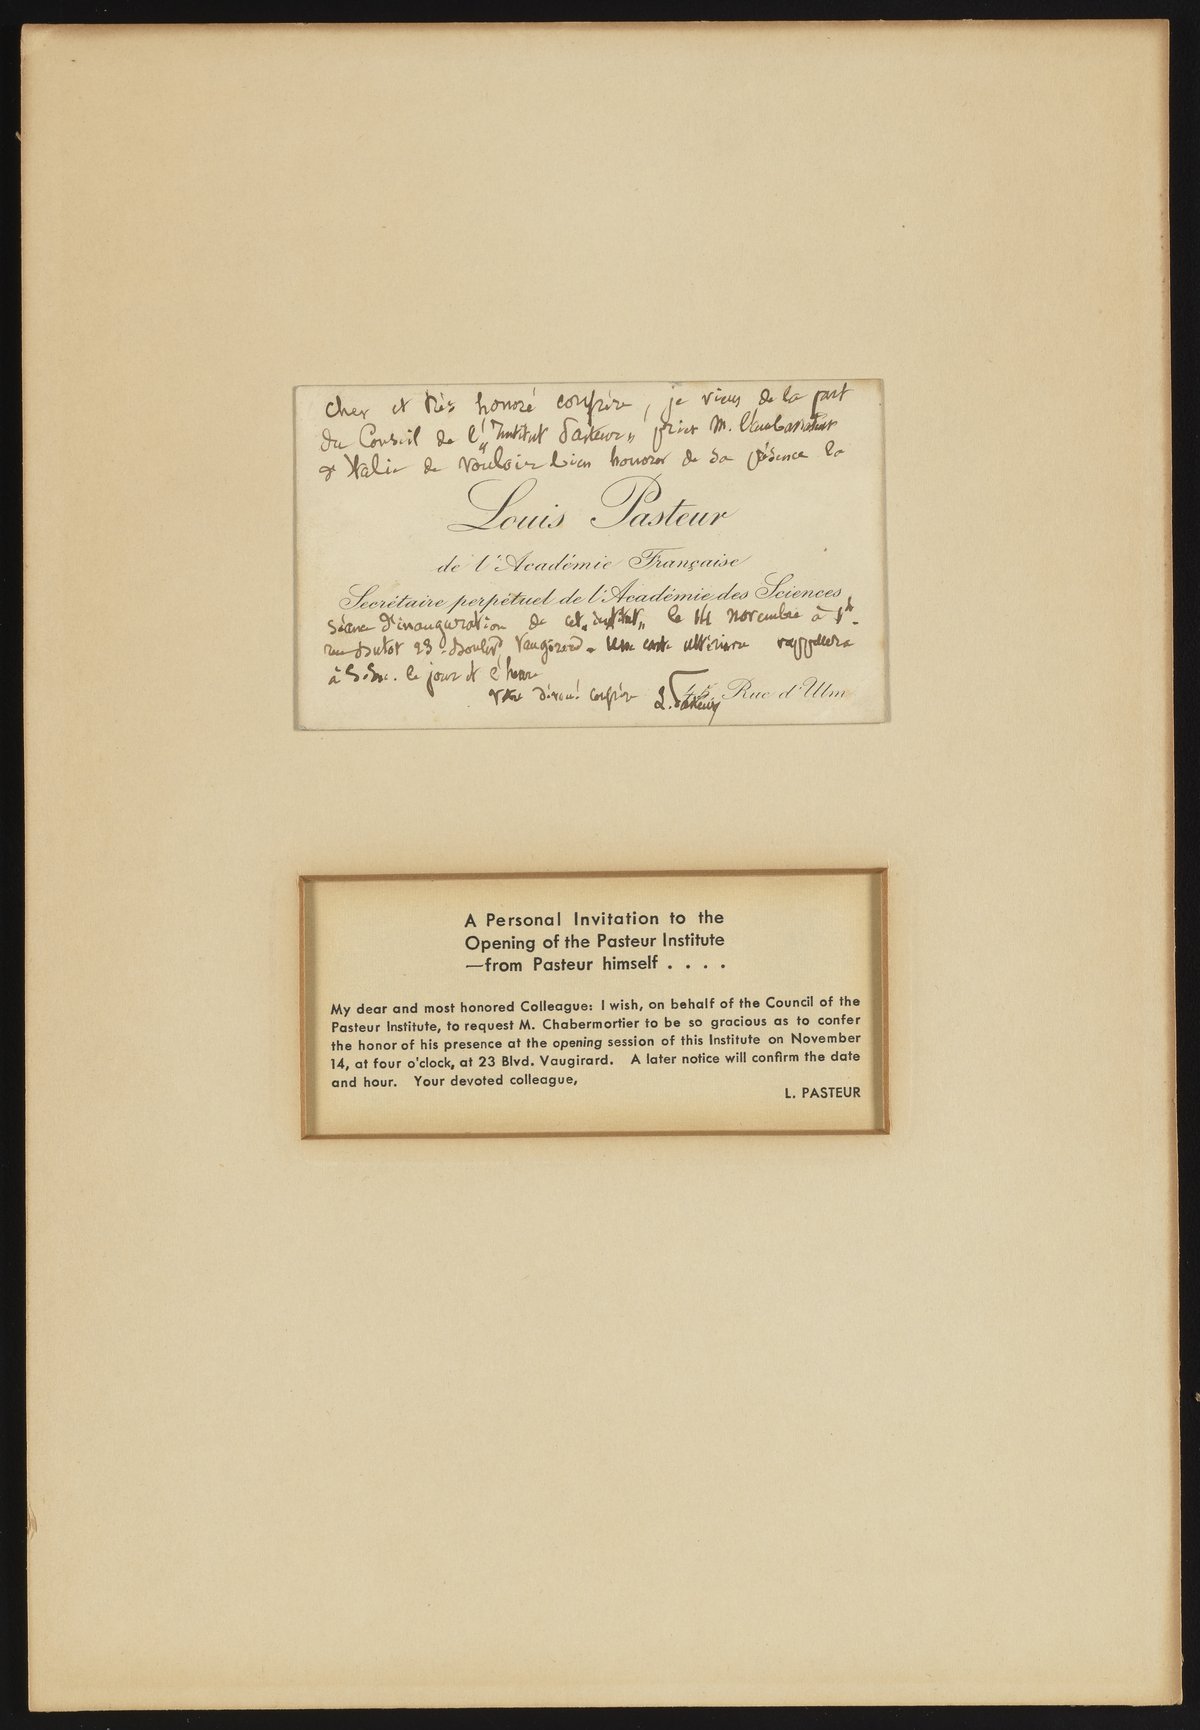 Cher et très honoré confrère, je viens de la part
du Conseil de l' „Institut Pasteur„ prier M. l'Ambassadeur
d'Italie de vouloir bien honorer de sa présence la
Louis Pasteur
de l'Académie Française
Secrétaire perpétuel de l'Académie des Sciences
séance d'inauguration de cet „institut„ le 14 novembre à 1h
rue Dutot 23 Vaugirard. Une carte ultérieure rappellera
à S. Exc. le jour et l'heure
Votre dévoué confrère L. Pasteur
45, Rue d'Ulm
A Personal Invitation to the
Opening of the Pasteur Institute
—from Pasteur himself . . . .
My dear and most honored Colleague: I wish, on behalf of the Council of the
Pasteur Institute, to request M. Chabermortier to be so gracious as to confer
the honor of his presence at the opening session of this Institute on November
14, at four o'clock, at 23 Blvd. Vaugirard. A later notice will confirm the date
and hour. Your devoted colleague,
L. PASTEUR